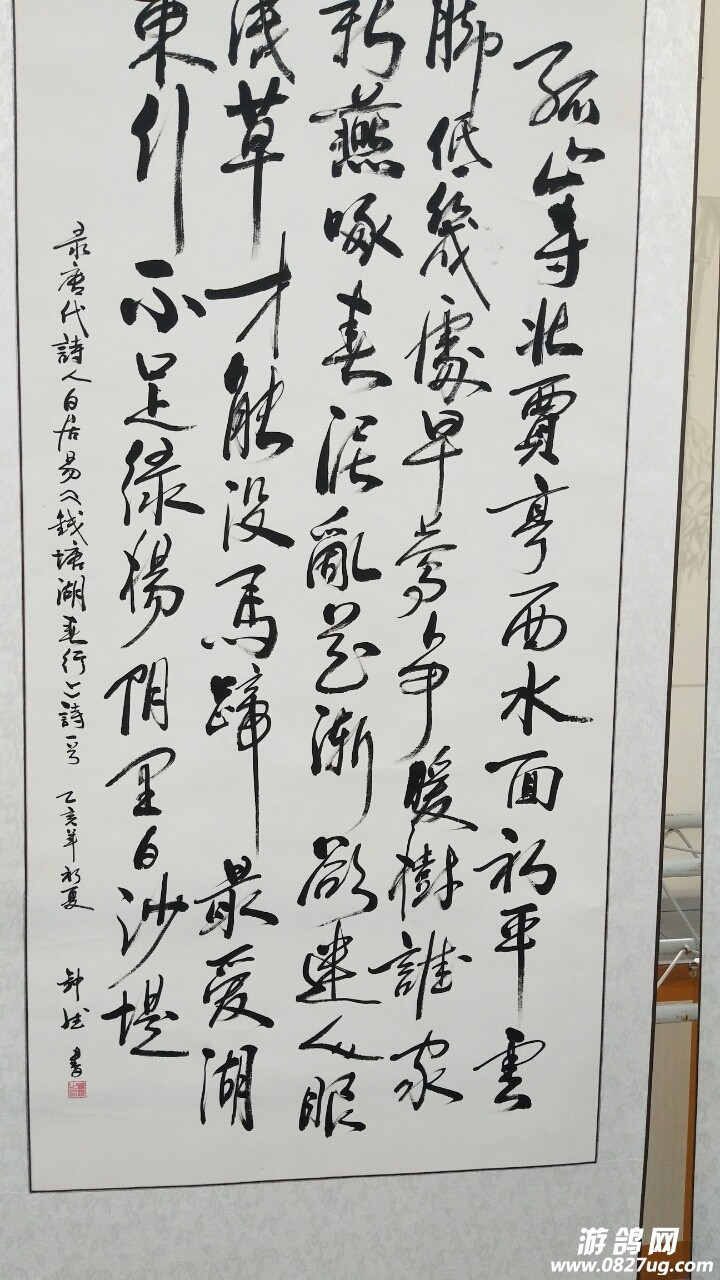 孤山寺北賈亭西水面初平雲
脚低幾處早鶯争暖樹誰家
新燕啄春泥亂花漸欲迷人眼
浅草才能没馬蹄最爱湖
東行不足绿楊阴里白沙堤
录唐代詩人白居易《錢塘湖春行》詩一首 乙亥年初夏 書
游鸽网
www.0827ug.com